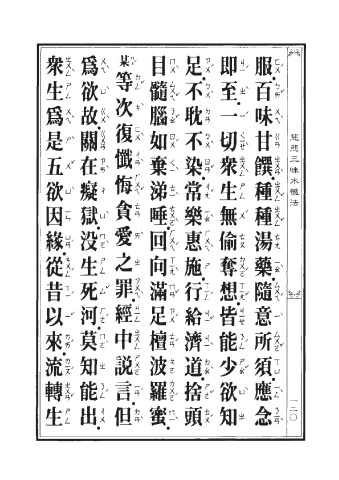 慈悲三昧水懺法
一二〇
服百味甘饌.種種湯藥.隨意所須.應念
即至.一切衆生無偷奪想.皆能少欲知
足.不耽不染.常樂惠施.行給濟道.捨頭
目髓腦.如棄涕唾.回向滿足檀波羅蜜.
某等次復懺悔貪愛之罪.經中説言.但
爲欲故.關在癡獄.没生死河.莫知能出.
衆生爲是五欲因緣.從昔以來.流轉生